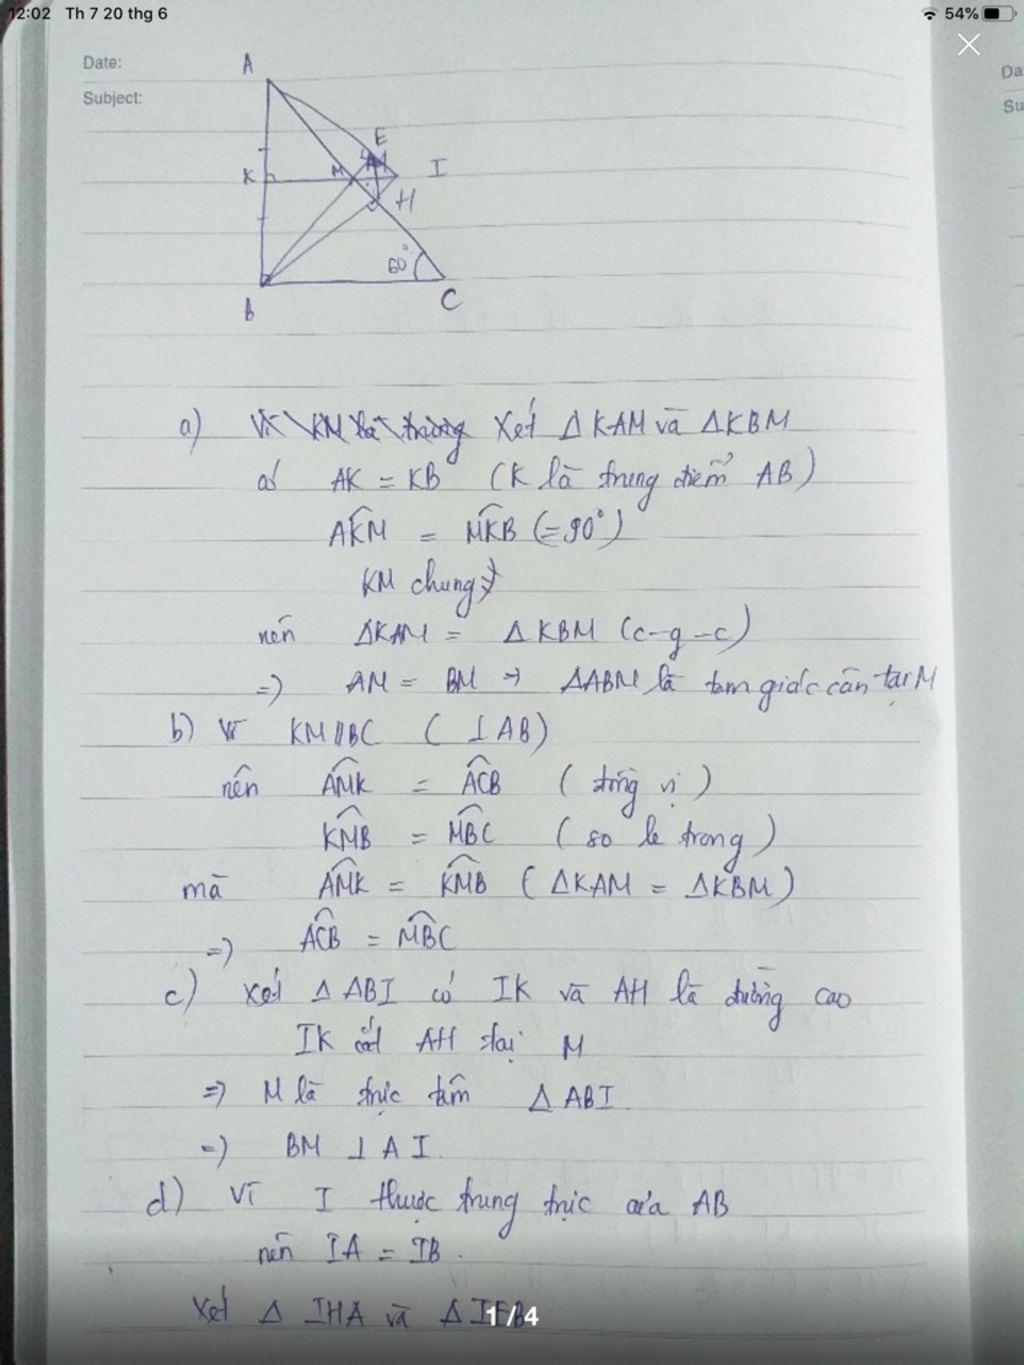 12:02 Th 7 20 thg 6
54%
Date:
Subject:
Da
Su
A
E
K
M
I
H
60°
B
C
a) Vì KM là trung Xét Δ KAM và Δ KBM
có AK = KB (K là trung điểm AB)
AKM = MKB (=90°)
KM chung
nên ΔKAM = Δ KBM (c-g-c)
=> AM = BM => ΔABM là tam giác cân tại M
b) Vì KM//BC ( ⊥ AB)
nên AMK = ACB ( đồng vị )
KMB = MBC ( so le trong )
mà AMK = KMB ( ΔKAM = ΔKBM )
=> ACB = MBC
c) Xét Δ ABI có IK và AH là đường cao
IK cắt AH tại M
=> M là trực tâm Δ ABI.
=> BM ⊥ AI.
d) Vì I thuộc trung trực của AB
nên IA = IB.
Xét Δ IHA và Δ IEB
1/4